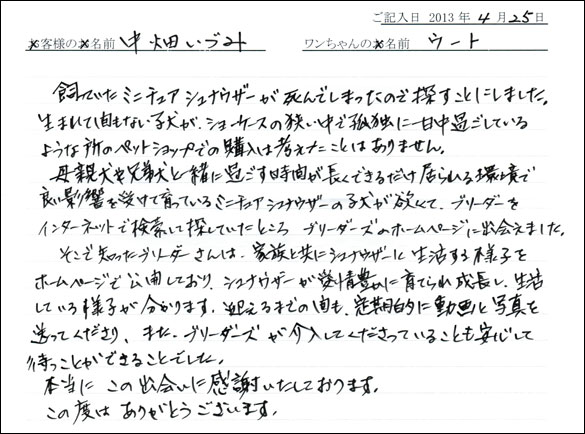 ご記入日 2013年4月25日
お客様のお名前 中畑いづみ ワンちゃんのお名前 ウート
飼っていたミニチュアシュナウザーが死んでしまったので探すことにしました。
生まれて間もない子犬が、ショーケースの狭い中で孤独に一日中過ごしている
ような所のペットショップでの購入は考えたことはありません。
母親犬や兄弟犬と一緒に過ごす時間が長くできるだけ居られる環境で
良い影響を受けて育っているミニチュアシュナウザーの子犬が欲しくて、ブリーダーを
インターネットで検索して探していたところ ブリーダーズのホームページに出会えました。
そこで知ったブリーダーさんは、家族と共にシュナウザーと生活する様子を
ホームページで公開しており、シュナウザーが愛情豊かに育てられ成長し、生活
している様子が分かります。迎えるまでの間も、定期的に動画と写真を
送ってくださり、また、ブリーダーズが介入してくださっていることも安心して
待つことができることでした。
本当に この出会いに感謝いたしております。
この度は ありがとうございます。